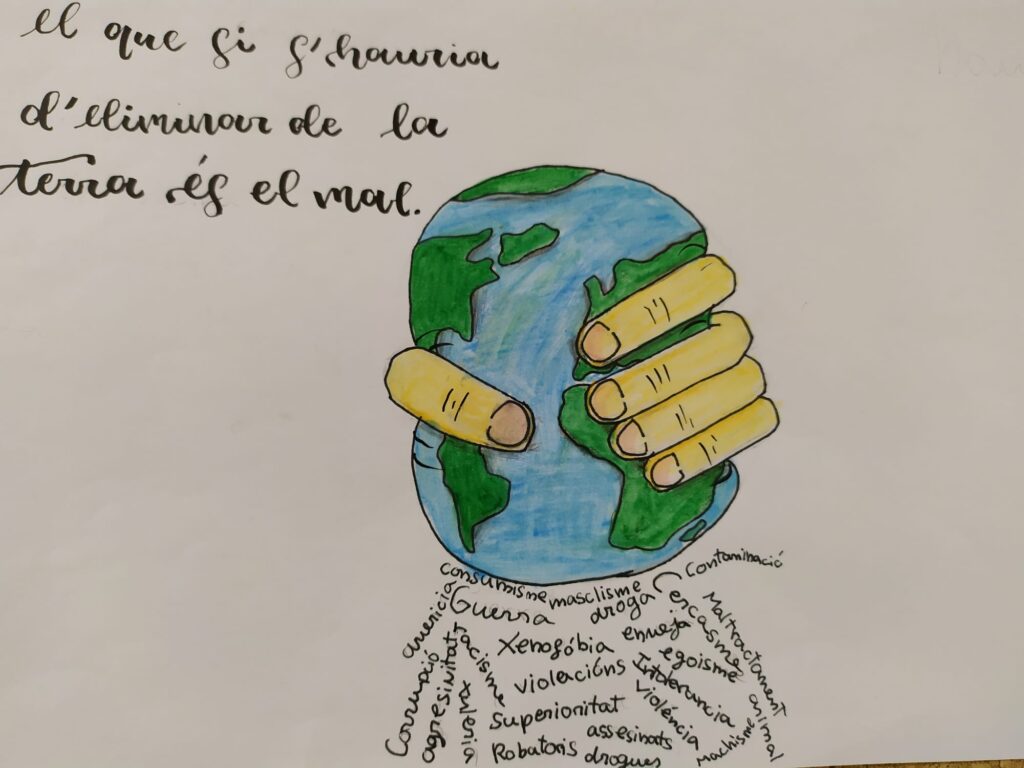 el que si s'hauria
d'eliminar de la
terra és el mal.
consumisme
masclisme
Contaminació
Guerra
droga
avaricia
racisme
Xenofóbia
enveja
egoisme
Maltractament animal
Corrupció
agresinitat
violacións
Intolerancia
violéncia
Superioritat
assesinats
machisme
Robatoris
drogues